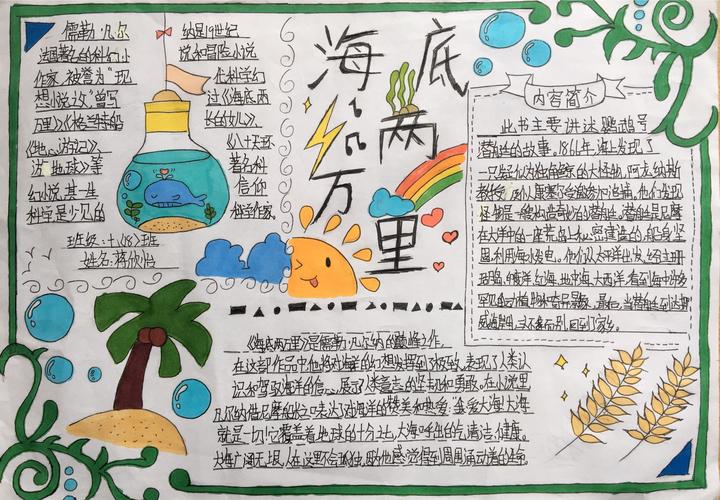 海底两万里
儒勒·凡尔纳是19世纪
法国著名的科幻小说和冒险小说
作家，被誉为"现代科学幻
想小说之父"曾写过《海底两
万里》《格兰特船长的女儿》
《地心游记》《八十天环
游地球》等著名科
幻小说，其一生信仰
科学是少见的科学作家。
班级：七(8)班
姓名：蒋欣怡
内容简介
此书主要讲述鹦鹉号
潜艇的故事。1866年，海上发现了
一只被认为独角鲸的大怪物，阿龙纳斯
教授
利用海水发电。他们从太平洋出发，经
印度洋、红海、地中海、大西洋，看到海中许多
罕见的动植物和奇异景象。最后，当潜艇到达挪
威海岸，
回到了家乡。
《海底两万里》是儒勒·凡尔纳的巅峰之作，
在这部作品中他将对海洋的幻想发挥到了极致，表现了人类认
识和驾驭海洋的信心，展示了人类意志的坚韧和勇敢。在小说里
凡尔纳借尼摩船长之口表达对海洋的赞美和热爱：我爱大海！大海
就是一切！它覆盖着地球的十分之七，大海呼出的气清洁、健康。
大海广阔无垠，人在这里不会孤独，因为他感觉得到周围涌动着的生命。